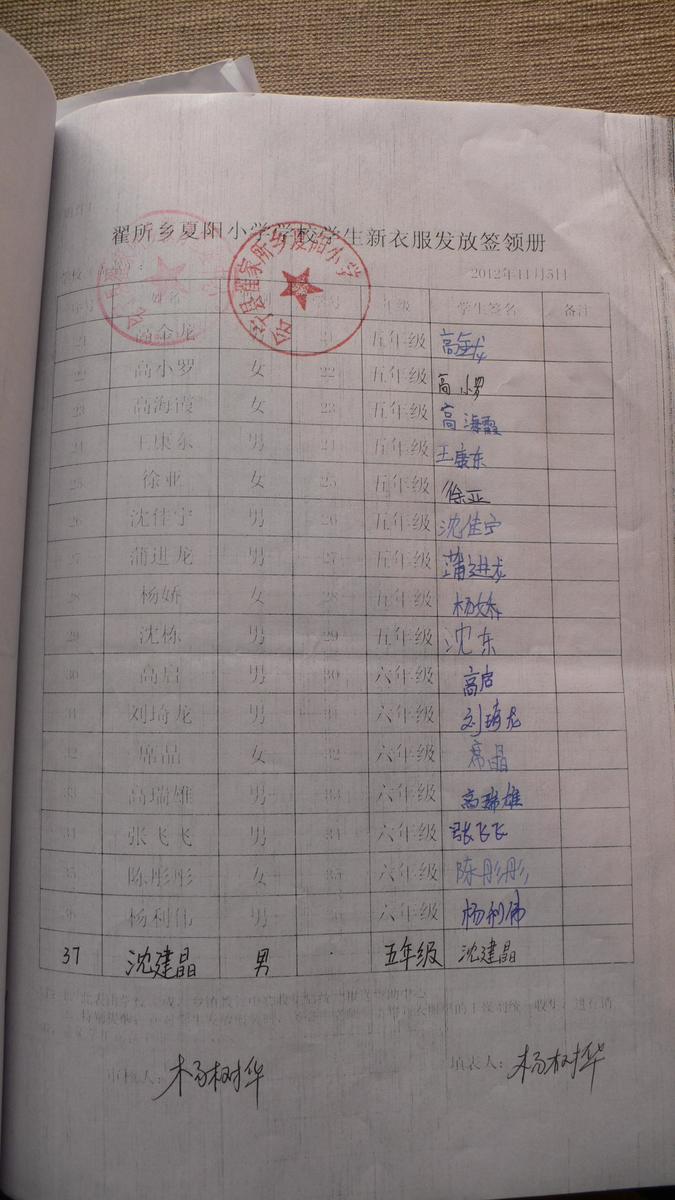 翟所乡夏阳小学学校学生新衣服发放签领册
2012年11月5日
序号 姓名 年级 学生签名 备注
21 高金龙 21 五年级 高金龙
22 高小罗 女 22 五年级 高小罗
23 高海霞 女 23 五年级 高海霞
24 王康东 男 24 五年级 王康东
25 徐亚 女 25 五年级 徐亚
26 沈佳宁 男 26 五年级 沈佳宁
27 蒲进龙 男 27 五年级 蒲进龙
28 杨娇 女 28 五年级 杨娇
29 沈栋 男 29 五年级 沈东
30 高启 男 30 六年级 高启
31 刘琦龙 男 31 六年级 刘琦龙
32 席晶 女 32 六年级 席晶
33 高瑞雄 男 33 六年级 高瑞雄
34 张飞飞 男 34 六年级 张飞飞
35 陈彤彤 女 35 六年级 陈彤彤
36 杨利伟 男 36 六年级 杨利伟
37 沈建晶 男 五年级 沈建晶
审核人：杨树华 填表人：杨树华